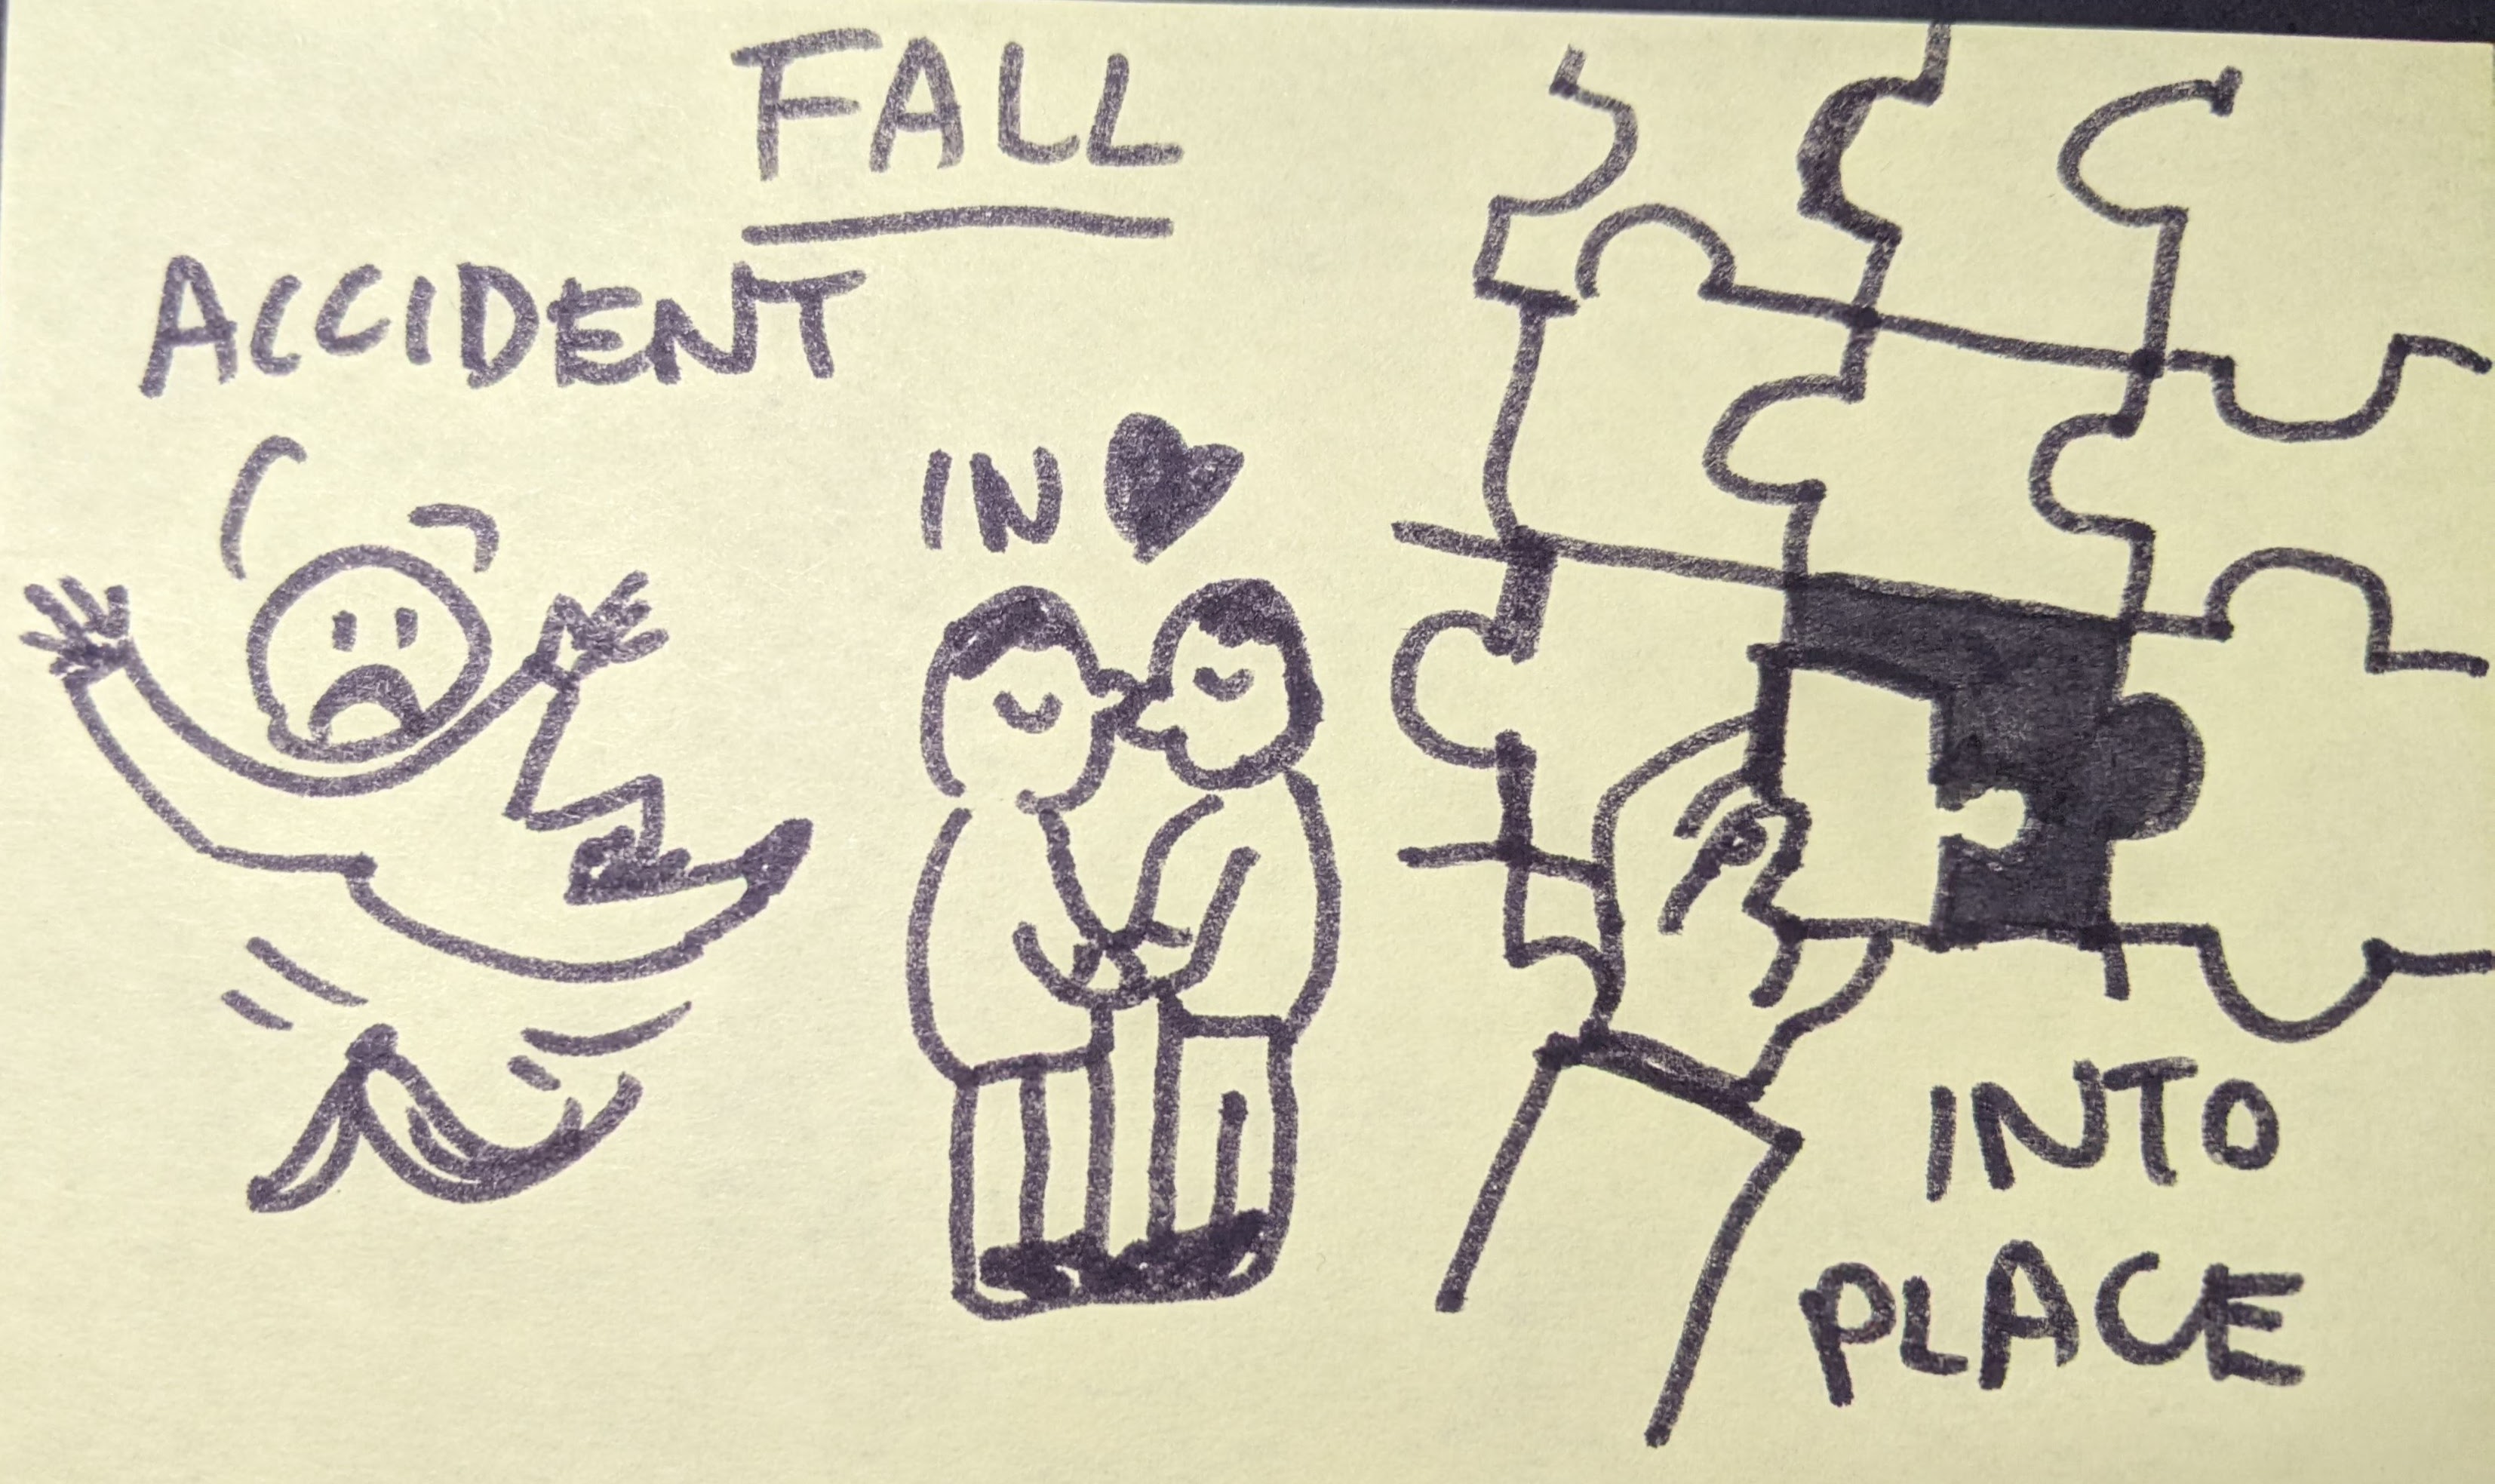 FALL
ACCIDENT
IN ♥
INTO
PLACE